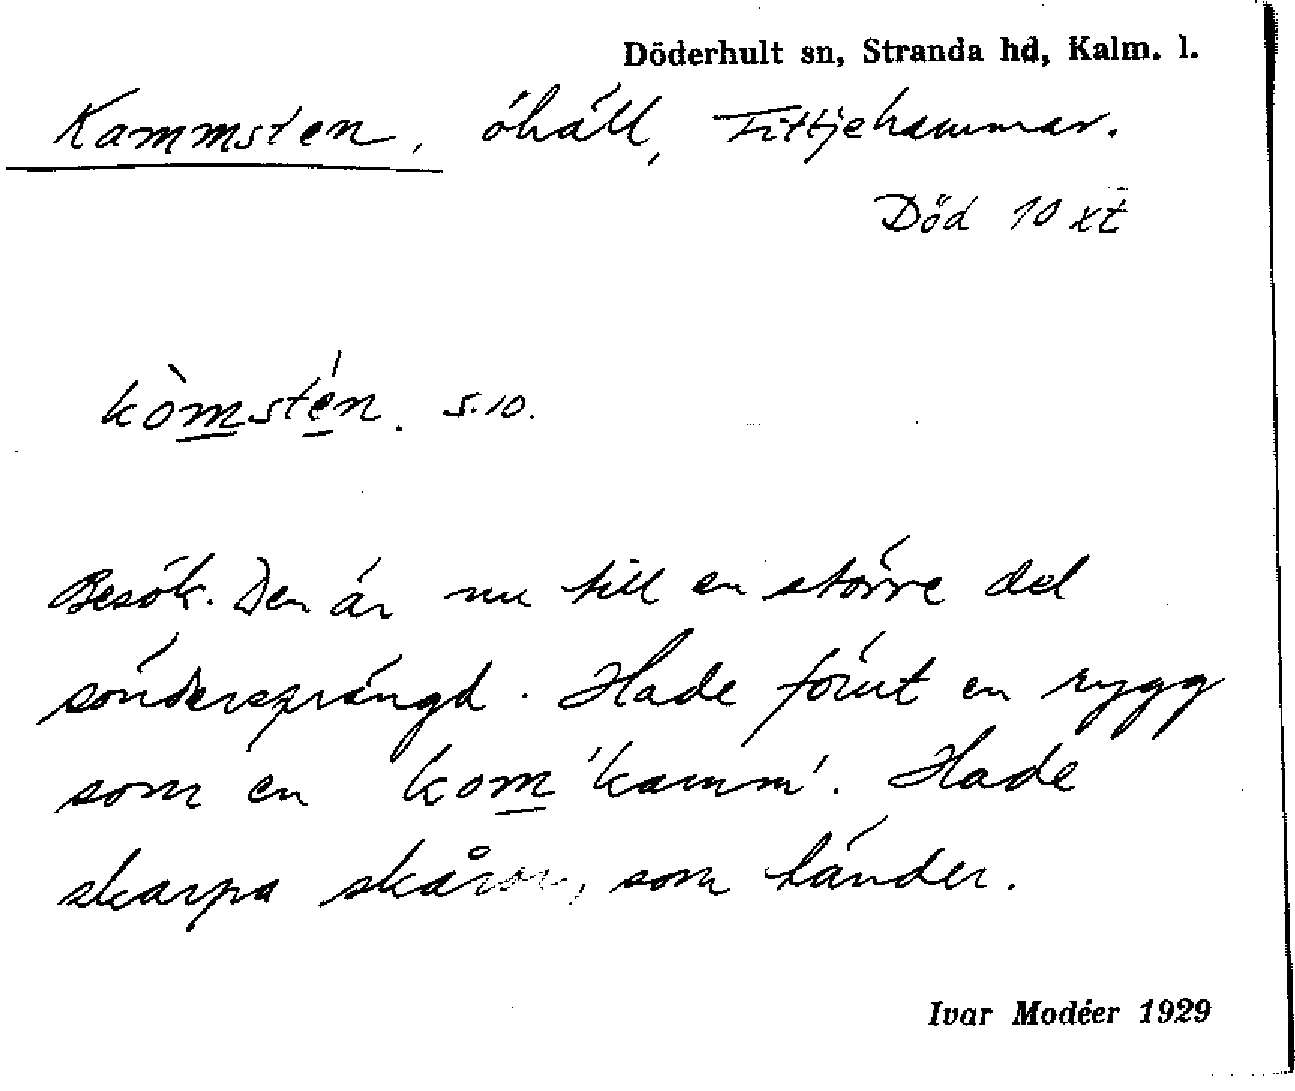 Döderhult sn, Stranda hd, Kalm. l.
Kammsten, öhäll, Fittjehammar.
Död 10 xt
kòmstén. s. 10.
Besök. Den är nu till en större del
söndersprängd. Hade förut en rygg
som en kom 'kamm'. Hade
skarpa skåror, som tänder.
Ivar Modéer 1929